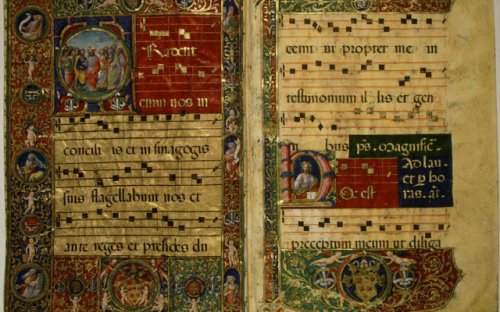 radent
enim vos in
concili is et in sinagogis
suis flagellabunt vos et
ante reges et presides du
cemi ni propter me in
testimonium il lis et gen
bus ps. Magnific̄.
Ad lau
et p ho
ras. añ.
oc est
preceptum meum ut diliga